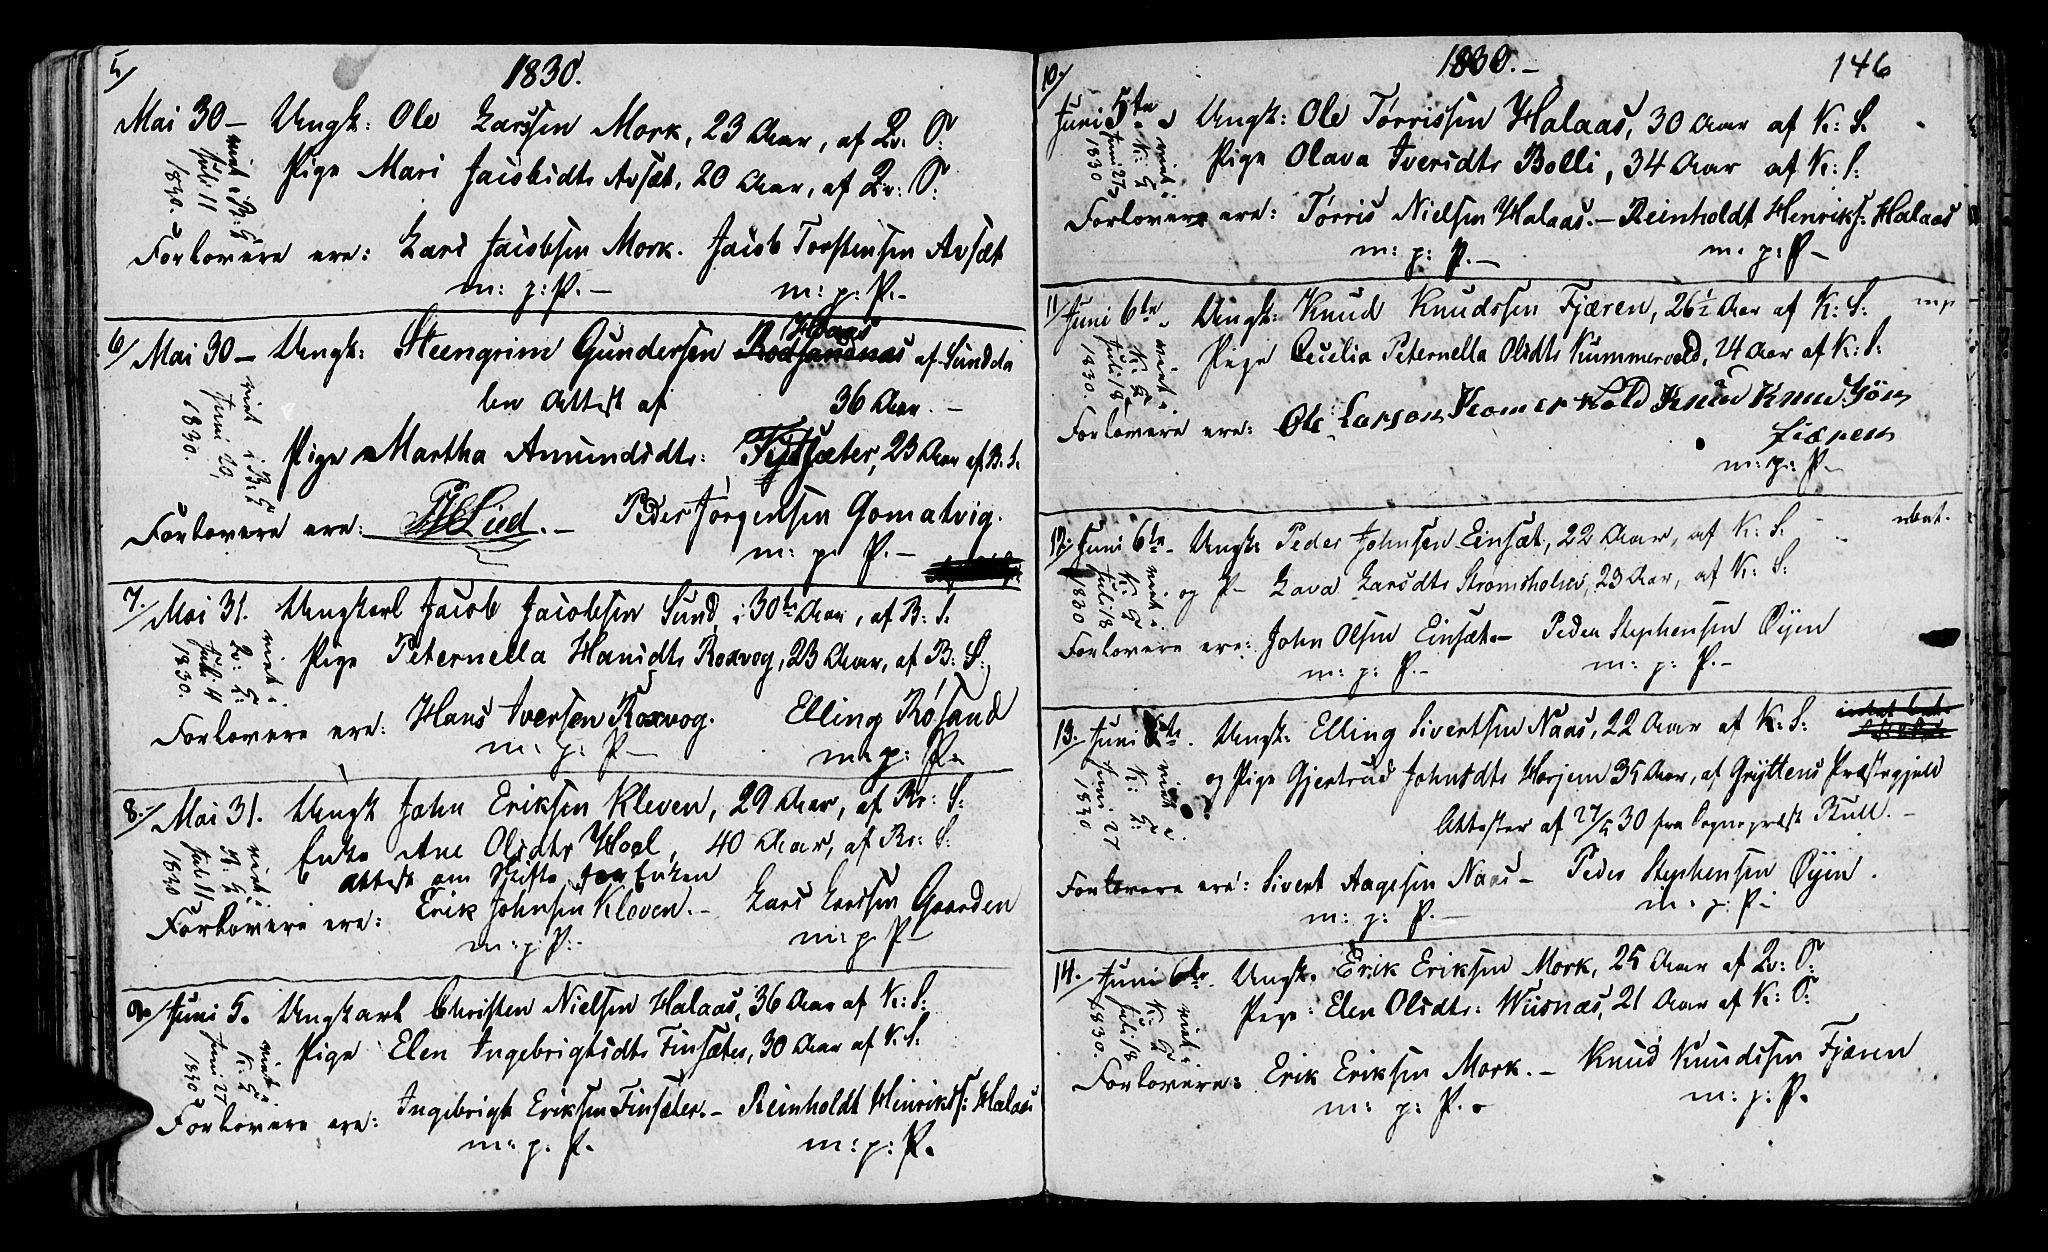 1830.
5/
Mai 30 – Ungk: Ole Larssen Mork, 23 Aar, af Qv. S:
Pige Mari Jacobsdtr Avsæt, 20 Aar, af Qv: S:
viet i B: K
Juli 11
1830.
Forlovere ere: Lars Jacobsen Mork. Jacob Torstensen Avsæt
m: p: P. – m: p: P. –
6/ Mai 30 – Ungk: Steengrim Gundersen Hoaas af Sundda
len Attest af 36 Aar. –
Pige Martha Amundsdtr: 23 Aar af B. S.
viet i B: K
Juni 20,
1830.
Forlovere ere: Lied. – Peder Jörgensen Gomalvig.
m: p: P. –
7. Mai 31. Ungkarl Jacob Jacobsen Sund, i 30te Aar, af B: S.
Pige Peternella Hansdtr Roxvog, 23 Aar, af B: S:
viet i
Qv: K:
Juli 4
1830.
Forlovere ere: Hans Iversen Roxvog. Elling Røsand
m: p: P – m. p: P.
8. Mai 31. Ungk John Eriksen Kleven, 29 Aar, af Br: S:
Enke Ane Olsdtr Hoel, 40 Aar, af Br: S:
Attest om Skifte for Enken
viet i
K:
Juli 11,
1830
Forlovere ere: Erik Johnsen Kleven. – Lars Larssen Gaarden
m: p: P: – m: p. P –
9. Juni 5. Ungkarl Christen Nielsen Halaas, 36 Aar af K: S:
Pige Elen Ingebrigtsdtr Finsæter, 30 Aar af K. S:
viet i
K. K:
Juni 27
1830
Forlovere ere: Ingebrigt Eriksen Finsæter. – Reinholdt Hinriks: Halaas
m: p: P. m: p: P.
1830. – 146
10.
Juni 5te. Ungk: Ole Tørrissen Halaas, 30 Aar af K: S.
Pige Olava Iversdtr Bolli, 34 Aar af K: S:
viet i
K: K
Juni 27
1830
Forlovere ere: Tørris Nielsen Halaas. – Reinholdt Henriks: Halaas
m: p: P. – m. p: P –
11/ Juni 6te. Ungk: Knud Knudssen Fjæren, 26½ Aar af K: S: mp
Pige Cecilia Peternella Olsdtr Kummervold, 24 Aar af K: S:
viet i
K: K
Juli 18
1830.
Forlovere ere: Ole Larson Kromer vold Knud Knudsøn
fiæren
m: p: P. –
12. Juni 6te – Ungk Peder Johnsen Einsæt, 22 Aar, af K: S.
og P – Lava Larsdtr Stromsholm, 23 Aar, af K: S:
viet i
K: K
Juli 18
1830
Forlovere ere: John Olsen Einsæt – Peder Stephensen Øyen
m: p: P. – m: p: P. –
13. Juni 6te. Ungk: Elling Sivertsen Naas, 22 Aar af K: S:
og Pige Gjertrud Johnsdtr Horjem 35 Aar, af Gryttens Præstegjeld
Attester af 27/5 30 fra Sognepræst Bull. –
viet i
K: K:
Juni 27
1830
Forlovere ere: Sivert Aagesen Naas – Peder Stephensen Øyen.
m: p: P. – m: p: P –
14. Juni 6te. Ungk. Erik Eriksen Mork, 25 Aar af Qv: S:
Pige: Elen Olsdtr: Wiisnæs, 21 Aar af K: S:
viet i
K: K
Juli 18
1830.
Forlovere: Erik Eriksen Mork. – Knud Knudssen Fjæren
m: p: P. m: p: P.